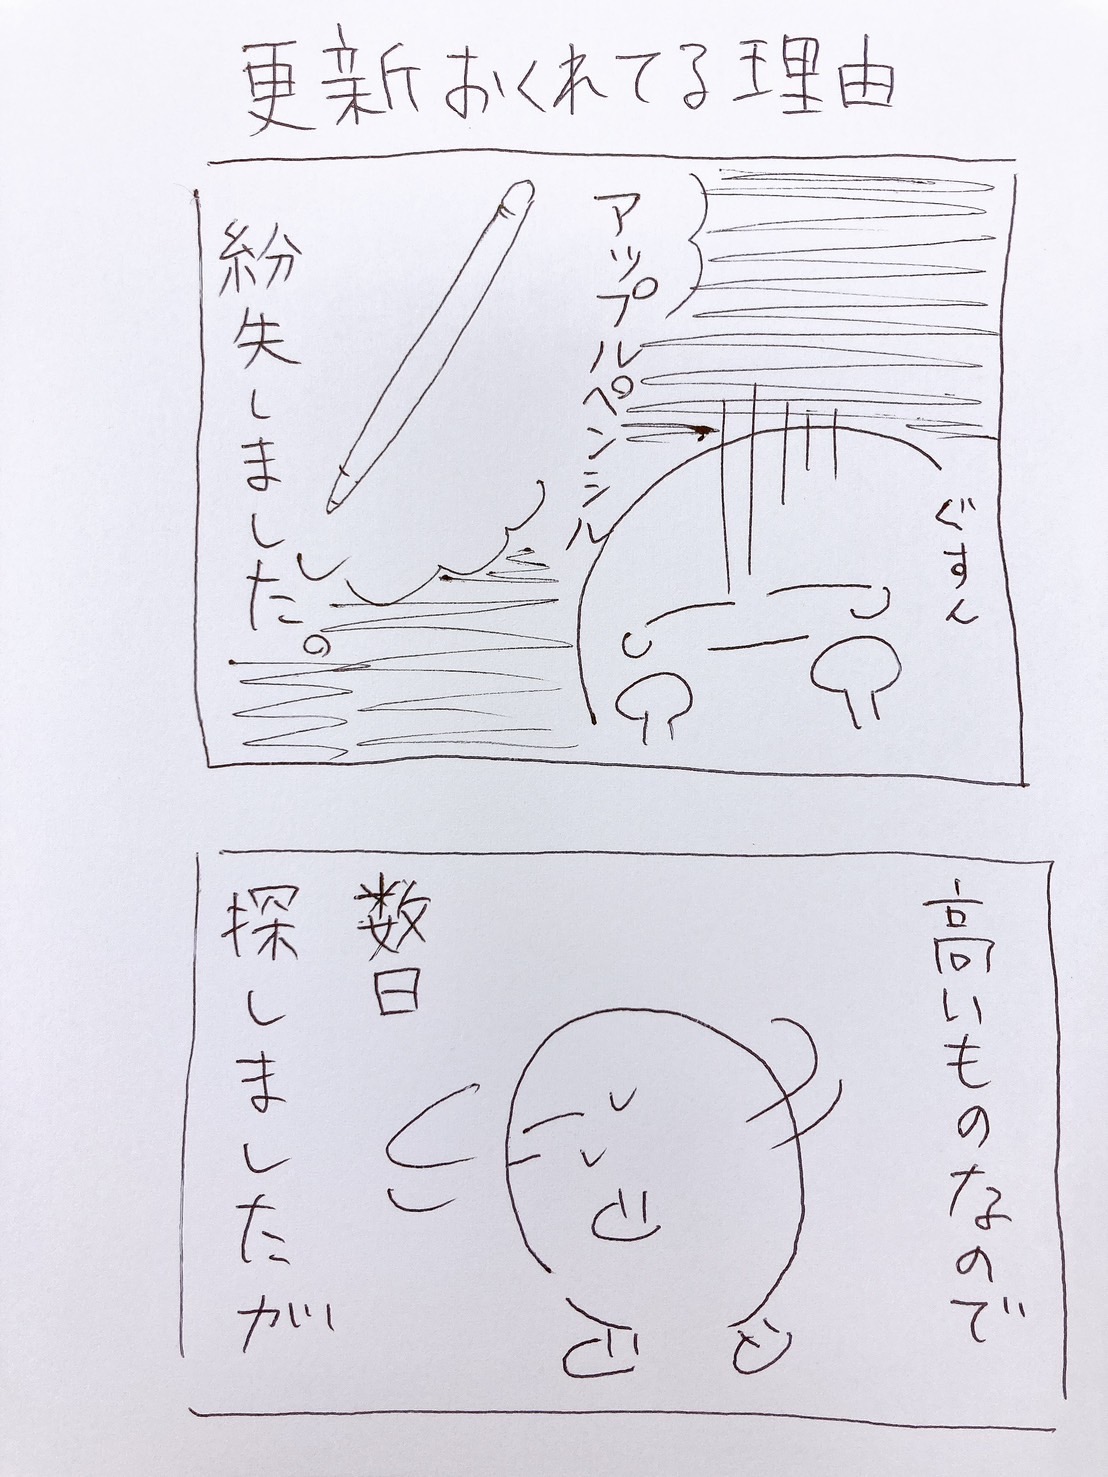 更新おくれてる理由
アップルペンシル
紛失しました。
ぐすん
高いものなので
数日
探しましたが